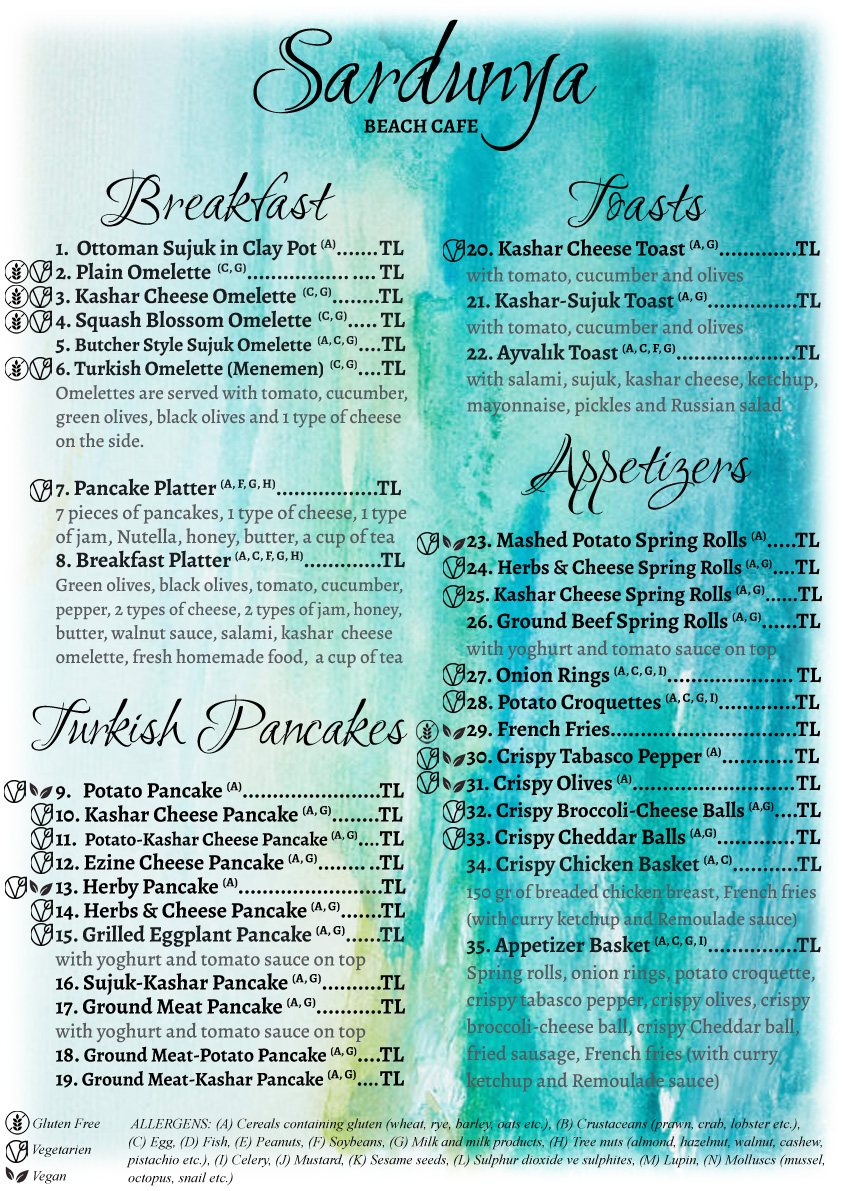 Sardunya
BEACH CAFE
Breakfast
1. Ottoman Sujuk in Clay Pot (A).......TL
2. Plain Omelette (C, G)................. .... TL
3. Kashar Cheese Omelette (C, G)........TL
4. Squash Blossom Omelette (C, G)..... TL
5. Butcher Style Sujuk Omelette (A, C, G)....TL
6. Turkish Omelette (Menemen) (C, G)....TL
Omelettes are served with tomato, cucumber,
green olives, black olives and 1 type of cheese
on the side.
7. Pancake Platter (A, F, G, H).................TL
7 pieces of pancakes, 1 type of cheese, 1 type
of jam, Nutella, honey, butter, a cup of tea
8. Breakfast Platter (A, C, F, G, H).............TL
Green olives, black olives, tomato, cucumber,
pepper, 2 types of cheese, 2 types of jam, honey,
butter, walnut sauce, salami, kashar cheese
omelette, fresh homemade food, a cup of tea
Turkish Pancakes
9. Potato Pancake (A).......................TL
10. Kashar Cheese Pancake (A, G)........TL
11. Potato-Kashar Cheese Pancake (A, G)....TL
12. Ezine Cheese Pancake (A, G)........ ..TL
13. Herby Pancake (A)........................TL
14. Herbs & Cheese Pancake (A, G).......TL
15. Grilled Eggplant Pancake (A, G)......TL
with yoghurt and tomato sauce on top
16. Sujuk-Kashar Pancake (A, G)..........TL
17. Ground Meat Pancake (A, G)...........TL
with yoghurt and tomato sauce on top
18. Ground Meat-Potato Pancake (A, G)....TL
19. Ground Meat-Kashar Pancake (A, G)....TL
Toasts
20. Kashar Cheese Toast (A, G).............TL
with tomato, cucumber and olives
21. Kashar-Sujuk Toast (A, G)...............TL
with tomato, cucumber and olives
22. Ayvalık Toast (A, C, F, G)....................TL
with salami, sujuk, kashar cheese, ketchup,
mayonnaise, pickles and Russian salad
Appetizers
23. Mashed Potato Spring Rolls (A).....TL
24. Herbs & Cheese Spring Rolls (A, G)....TL
25. Kashar Cheese Spring Rolls (A, G)......TL
26. Ground Beef Spring Rolls (A, G)......TL
with yoghurt and tomato sauce on top
27. Onion Rings (A, C, G, I)..................... TL
28. Potato Croquettes (A, C, G, I).............TL
29. French Fries...............................TL
30. Crispy Tabasco Pepper (A)............TL
31. Crispy Olives (A)................................TL
32. Crispy Broccoli-Cheese Balls (A,G)....TL
33. Crispy Cheddar Balls (A,G).............TL
34. Crispy Chicken Basket (A, C)...............TL
150 gr of breaded chicken breast, French fries
(with curry ketchup and Remoulade sauce)
35. Appetizer Basket (A, C, G, I)...............TL
Spring rolls, onion rings, potato croquette,
crispy tabasco pepper, crispy olives, crispy
broccoli-cheese ball, crispy Cheddar ball,
fried sausage, French fries (with curry
ketchup and Remoulade sauce)
Gluten Free
Vegetarien
Vegan
ALLERGENS: (A) Cereals containing gluten (wheat, rye, barley, oats etc.), (B) Crustaceans (prawn, crab, lobster etc.),
(C) Egg, (D) Fish, (E) Peanuts, (F) Soybeans, (G) Milk and milk products, (H) Tree nuts (almond, hazelnut, walnut, cashew,
pistachio etc.), (I) Celery, (J) Mustard, (K) Sesame seeds, (L) Sulphur dioxide ve sulphites, (M) Lupin, (N) Molluscs (mussel,
octopus, snail etc.)